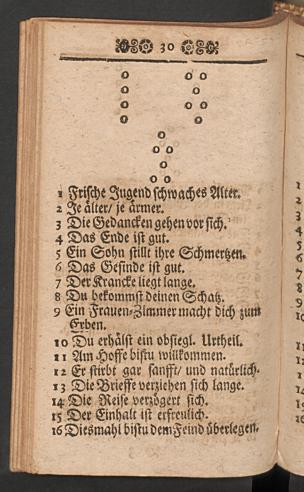 30
1 Frische Jugend schwaches Alter.
2 Je älter/ je ärmer.
3 Die Gedancken gehen vor sich.
4 Das Ende ist gut.
5 Ein Sohn stillt ihre Schmertzen.
6 Das Gesinde ist gut.
7 Der Krancke liegt lange.
8 Du bekommst deinen Schatz.
9 Ein Frauen-Zimmer macht dich zum
Erben.
10 Du erhälst ein obsiegl. Urtheil.
11 Am Hoffe bistu willkommen.
12 Er stirbt gar sanfft/ und natürlich.
13 Die Brieffe verziehen sich lange.
14 Die Reise verzögert sich.
15 Der Einhalt ist erfreulich.
16 Diesmahl bistu dem Feind überlegen.